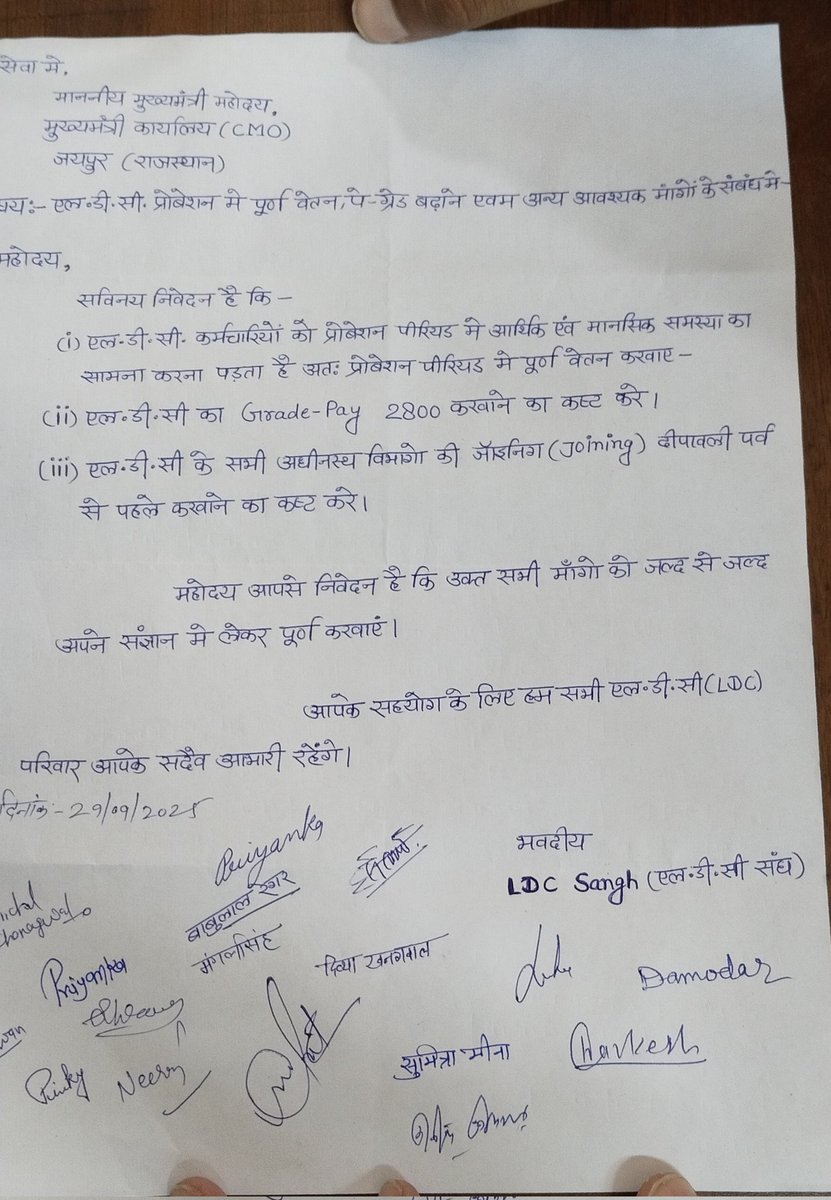 सेवा मे,
माननीय मुख्यमंत्री महोदय,
मुख्यमंत्री कार्यालय (CMO)
जयपुर (राजस्थान)
षय:- एल.डी.सी. प्रोबेशन मे पूर्ण वेतन, पे-ग्रेड बढ़ाने एवम अन्य आवश्यक मांगों के संबंध मे-
महोदय,
सविनय निवेदन है कि -
(i) एल.डी.सी. कर्मचारियों को प्रोबेशन पीरियड मे आर्थिक एंव मानसिक समस्या का
सामना करना पड़ता है अतः प्रोबेशन पीरियड मे पूर्ण वेतन करवाए -
(ii) एल.डी.सी का Grade-Pay 2800 करवाने का कष्ट करे।
(iii) एल.डी.सी के सभी अधीनस्थ विभागो की जॉइनिग (Joining) दीपावली पर्व
से पहले करवाने का कष्ट करे।
महोदय आपसे निवेदन है कि उक्त सभी माँगो को जल्द से जल्द
अपने संज्ञान मे लेकर पूर्ण करवाएं।
आपके सहयोग के लिए हम सभी एल.डी.सी (LDC)
परिवार आपके सदैव आभारी रहेंगे।
दिनांक:- 29/09/2025
भवदीय
LDC Sangh (एल.डी.सी संघ)
Priyanka
बाबुलाल रैगर
मंगलसिंह
दिव्या खनगवाल
Priyanka
Damodar
सुमित्रा मीना
Pinky